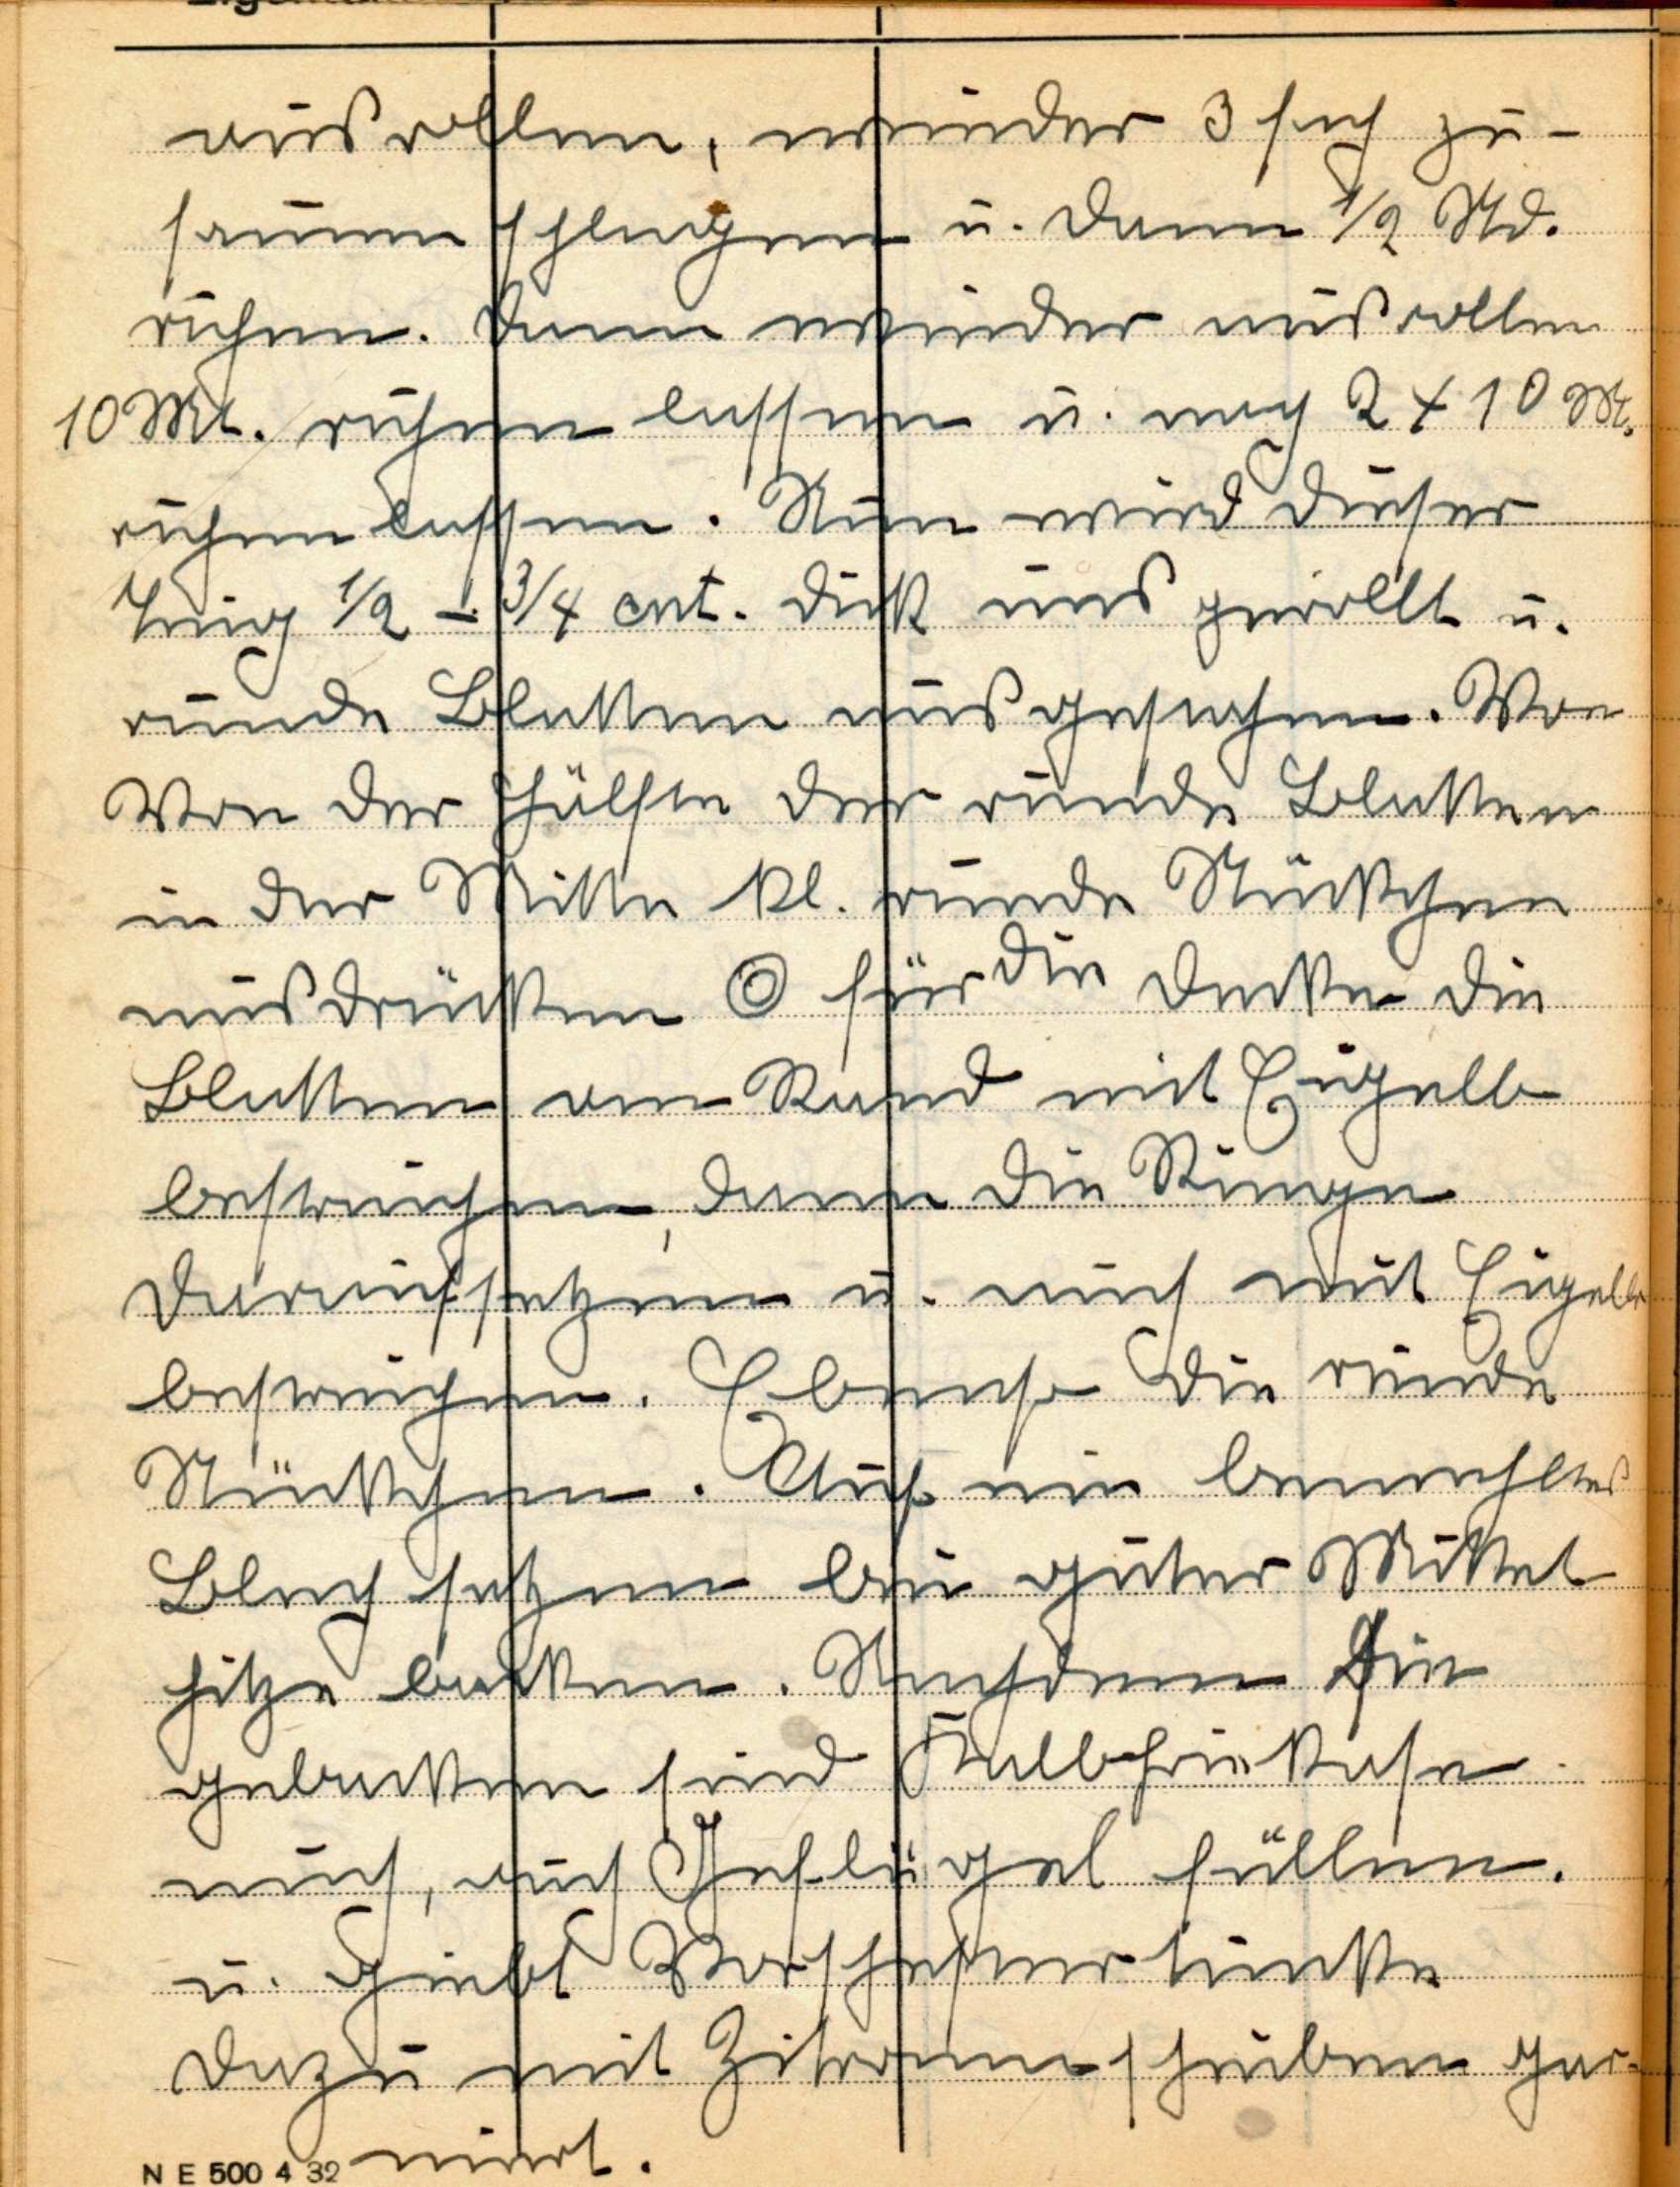 ausrollen, wieder 3 fach zu-
sammen schlagen u. dann 1/2 Std.
ruhen. Dann wieder ausrollen
10 Mt. ruhen lassen u. noch 2 x 10 Mt.
ruhen lassen. Nun wird dieser
Teig 1/2 - 3/4 cmt. dick aus gerollt u.
runde Blatten ausgestochen. Von
Von der Hälfte der runde Blatten
in der Mitte kl. runde Stückchen
ausdrücken für die Decke die
Blatten am Rand mit Eigelb
bestreichen, dann die Ringe
daraufsetzen u. auch mit Eigelb
bestreichen. Ebenso die runde
Stückchen. Auf ein bemehltes
Blech setzen bei guter Mittel
hitze backen. Nachdem sie
gebacken sind Kalbsfrikase
auch, auch Geflügel füllen.
u. Giebt Worschester tunke
dazu mit Zitronenscheiben gar-
niert.
N E 500 4 32